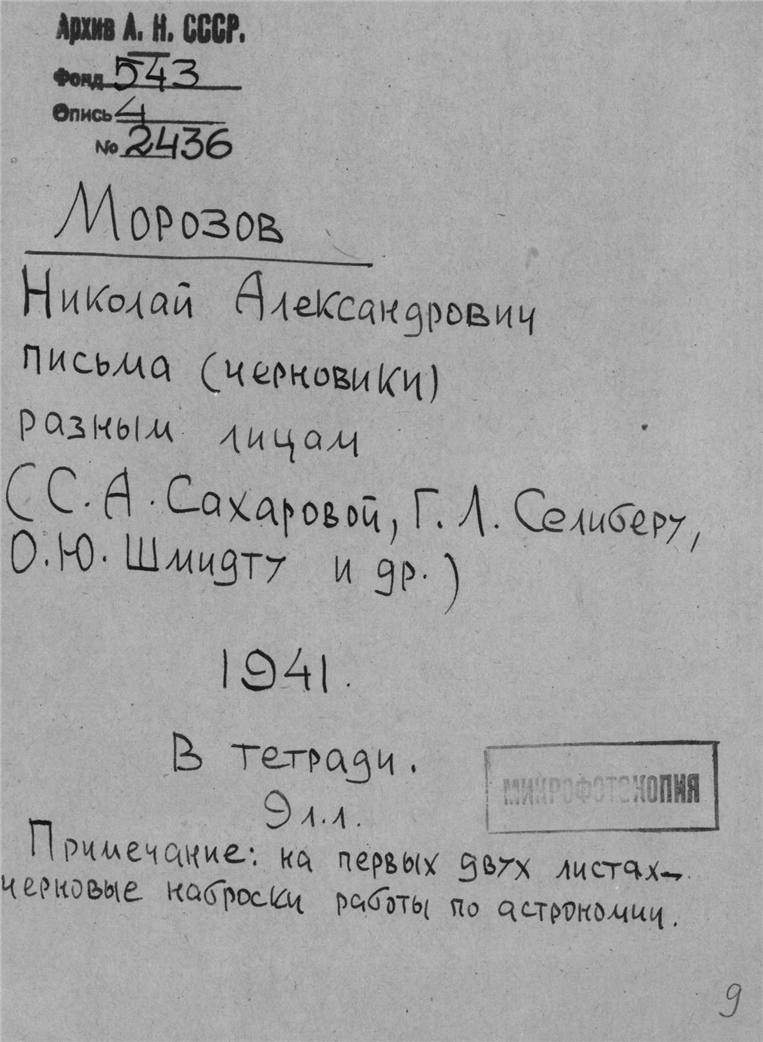 Архив А. Н. СССР.
Фонд 543
Опись 4
№ 2436
Морозов
Николай Александрович
письма (черновики)
разным лицам
(С.А. Сахаровой, Г.Л. Селиберу,
О.Ю. Шмидту и др.)
1941.
В тетради.
9 л.л.
МИКРОФОТОКОПИЯ
Примечание: на первых двух листах –
черновые наброски работы по астрономии.
9